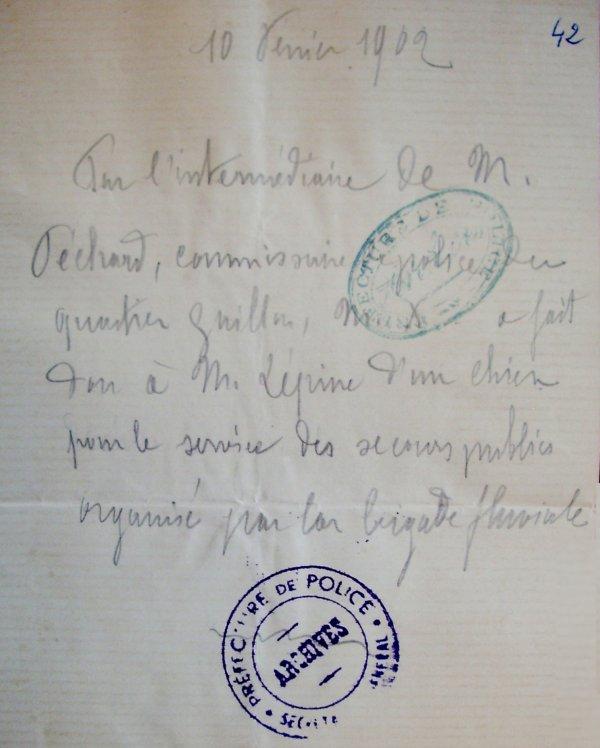 42
10 Février 1902
Par l'intermédiaire de M.
Péchard, commissaire police du
quartier M. a fait
don à M. Lépine d'un chien
pour le service des secours publics
organisé par la brigade fluviale
PREFECTURE DE POLICE
PREFECTURE DE POLICE
ARCHIVES